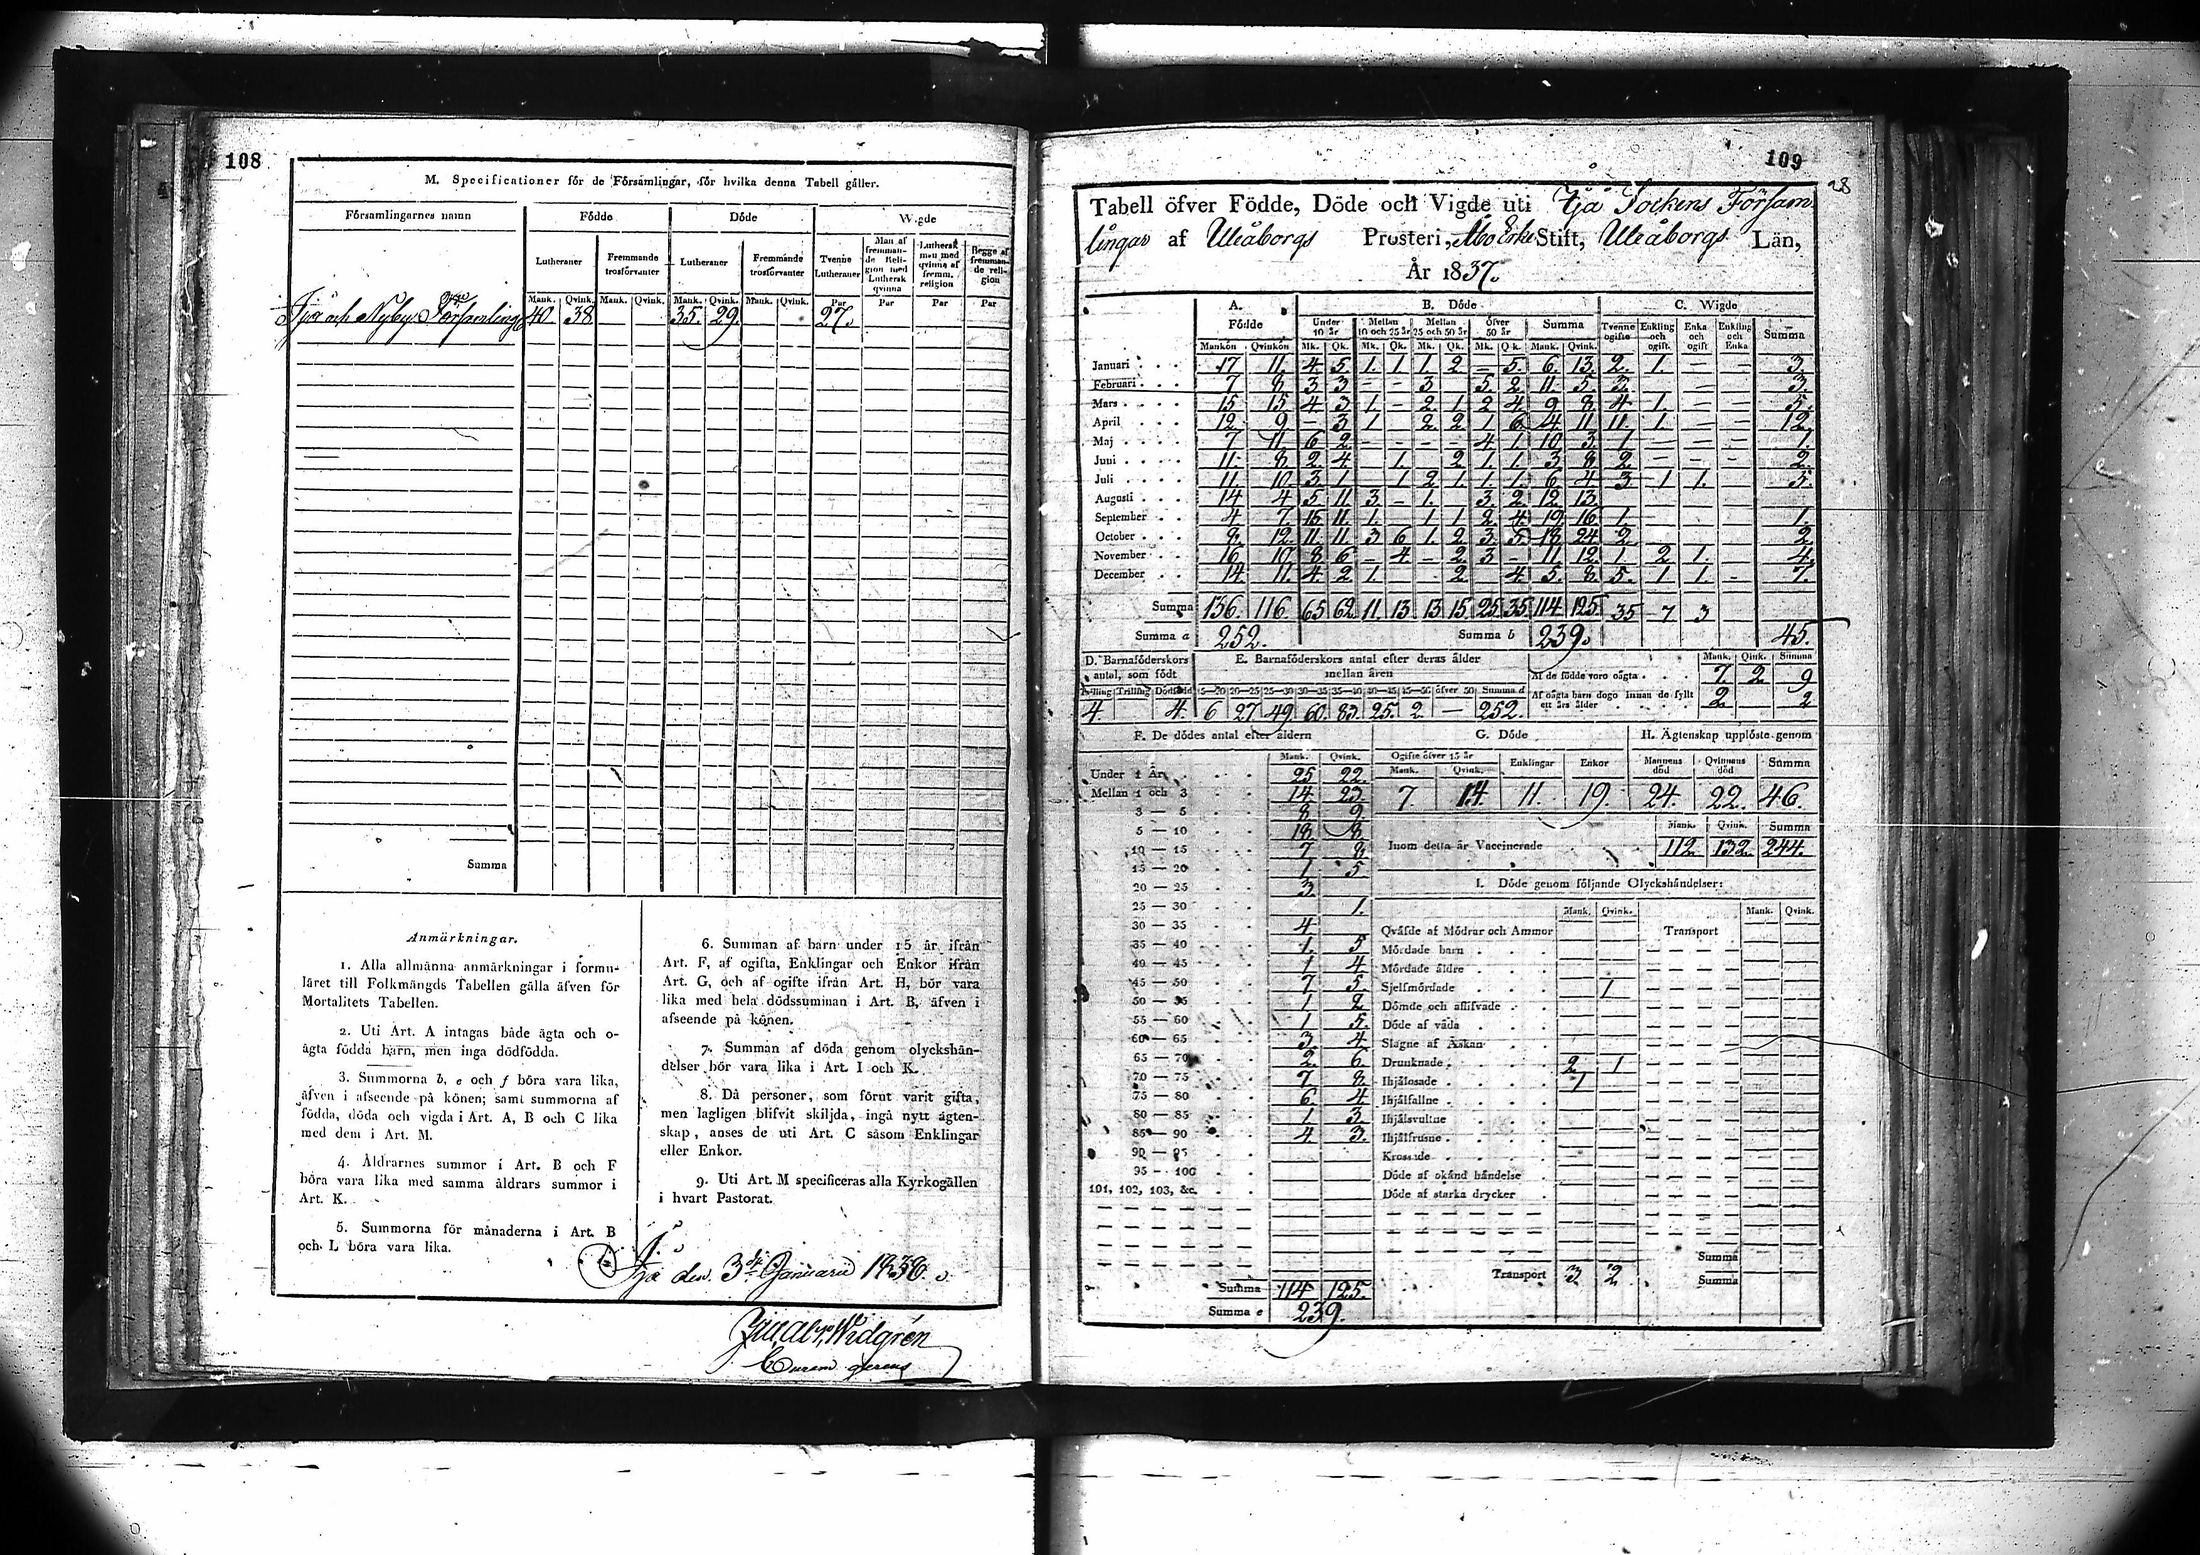 108
M. Specificationer för de Församlingar, för hvilka denna Tabell gäller.
Församlingarnes namn Födde Döde Wigde
Lutheraner Fremmande trosförvanter Lutheraner Fremmande trosförvanter Tvenne Lutheraner Man af fremmande Religion med Luthersk qvinna Luthersk man med qvinna af fremm. religion Begge af fremmande religion
Mank. Qvink. Mank. Qvink. Mank. Qvink. Mank. Qvink. Par Par Par Par
Ijo och Nyby Församling 40 38 35. 29. 27.
Summa
Anmärkningar.
1. Alla allmänna anmärkningar i formu-
läret till Folkmängds Tabellen gälla äfven för
Mortalitets Tabellen.
2. Uti Art. A intagas både ägta och o-
ägta födda barn, men inga dödfödda.
3. Summorna b, e och f böra vara lika,
äfven i afseende på könen; samt summorna af
födda, döda och vigda i Art. A, B och C lika
med dem i Art. M.
4. Åldrarnes summor i Art. B och F
böra vara lika med samma åldrars summor i
Art. K.
5. Summorna för månaderna i Art. B
och L böra vara lika.
6. Summan af barn under 15 år ifrån
Art. F, af ogifta, Enklingar och Enkor ifrån
Art. G, och af ogifte ifrån Art. H, bör vara
lika med hela dödssumman i Art. B, äfven i
afseende på könen.
7. Summan af döda genom olyckshän-
delser bör vara lika i Art. I och K.
8. Då personer, som förut varit gifta,
men lagligen blifvit skiljda, ingå nytt ägten-
skap, anses de uti Art. C såsom Enklingar
eller Enkor.
9. Uti Art. M specificeras alla Kyrkogällen
i hvart Pastorat.
den 3 Januarii 1838.
Widgrén
Curam gerens
109
28
Tabell öfver Födde, Döde och Vigde uti Ijo Sockens Församlingar
af Uleåborgs Prosteri, Åbo Erke Stift, Uleåborgs Län,
År 1837.
A. B. Döde C. Wigde
Födde Under 10 år Mellan 10 och 25 år Mellan 25 och 50 år Öfver 50 år Summa Tvenne ogifte Enkling och ogift. Enka och ogift Enkling och Enka Summa
Mankön Qvinkön Mk. Qk. Mk. Qk. Mk. Qk. Mk. Qk. Mank. Qvink.
Januari 17 11. 4. 5. 1. 1. 1. 2 – 5. 6. 13. 2. 1. – – 3.
Februari 7 8. 3 3 – – 3 5. 2. 11 5. 3. – – 3.
Mars 15 15. 4 3 1. – 2. 1. 2 4. 9 8. 4 1. – – 5.
April 12. 9. – 3 1 2 2 1 6 4 11 11. 1. – – 12.
Maj 7 11. 6 2 – – – – 4 1. 10 3. 1 – – – 1.
Juni 11. 8. 2. 4 1. 2 1. 1. 3 8 2 – – – 2.
Juli 11. 10. 3. 1 1 2 1. 1. 1. 6 4 3 1 1. 5.
Augusti 14 4. 5 11 3 – 1. 3. 2 12 13
September 4 7. 15 11. 1. 1 1 2 4. 19 16. 1. 1.
October 8. 12. 11 11 3 6 1. 2 3. 5. 18 24 2 2.
November 16 10. 8 6 – 4 – 2 3 – 11 12 1. 2 1. 4.
December 14. 11. 4 2 1. 2 4. 5. 8. 5. 1 1. – 7.
Summa 136. 116. 65 62. 11. 13. 13 15. 25. 35. 114. 125. 35 7 3
Summa a 252. Summa b 239. 45.
D. Barnaföderskors antal, som födt E. Barnaföderskors antal efter deras ålder mellan åren Mank. Qink. Summa
Af de födde voro oägta 7. 2. 9
Tvilling Trilling Dödfödd 15–20 20–25 25–30 30–35 35–40 40–45 45–50 öfver 50 Summa d
Af oägta barn dogo innan de fyllt ett års ålder 2. 2
4. 4. 6 27 49. 60. 83. 25. 2. – 252.
F. De dödes antal efter åldern G. Döde H. Ägtenskap upplöste genom
Mank. Qvink. Ogifte öfver 15 år Enklingar Enkor Mannens död Qvinnans död Summa
Mank. Qvink.
Under 1 År 25 22.
Mellan 1 och 3 14. 23. 7. 14. 11. 19. 24. 22. 46.
3 — 5 8 9.
5 — 10 18 8.
10 — 15 7 8.
15 — 20 1 5
20 — 25 3.
25 — 30 1.
30 — 35 4
35 — 40 1. 5
40 — 45 1 4.
45 — 50 7 5.
50 — 55 1 2
55 — 60 1 5.
60 — 65 3. 4
65 — 70 2. 6.
70 — 75 7 8.
75 — 80 6. 4
80 — 85 1. 3.
85 — 90 4. 3.
90 — 95
95 — 100
101, 102, 103, &c.
Summa 114 125.
Summa e 239.
Mank. Qvink. Summa
Inom detta år Vaccinerade 112. 132. 244.
I. Döde genom följande Olyckshändelser:
Mank. Qvink. Mank. Qvink.
Qväfde af Mödrar och Ammor Transport
Mördade barn
Mördade äldre
Sjelfmördade 1
Dömde och aflifvade
Döde af våda
Slagne af Åskan
Drunknade 2. 1
Ihjälosade 1
Ihjälfallne
Ihjälsvultne
Ihjälfrusne
Krossade
Döde af okänd händelse
Döde af starka drycker
Summa
Transport 3 2. Summa